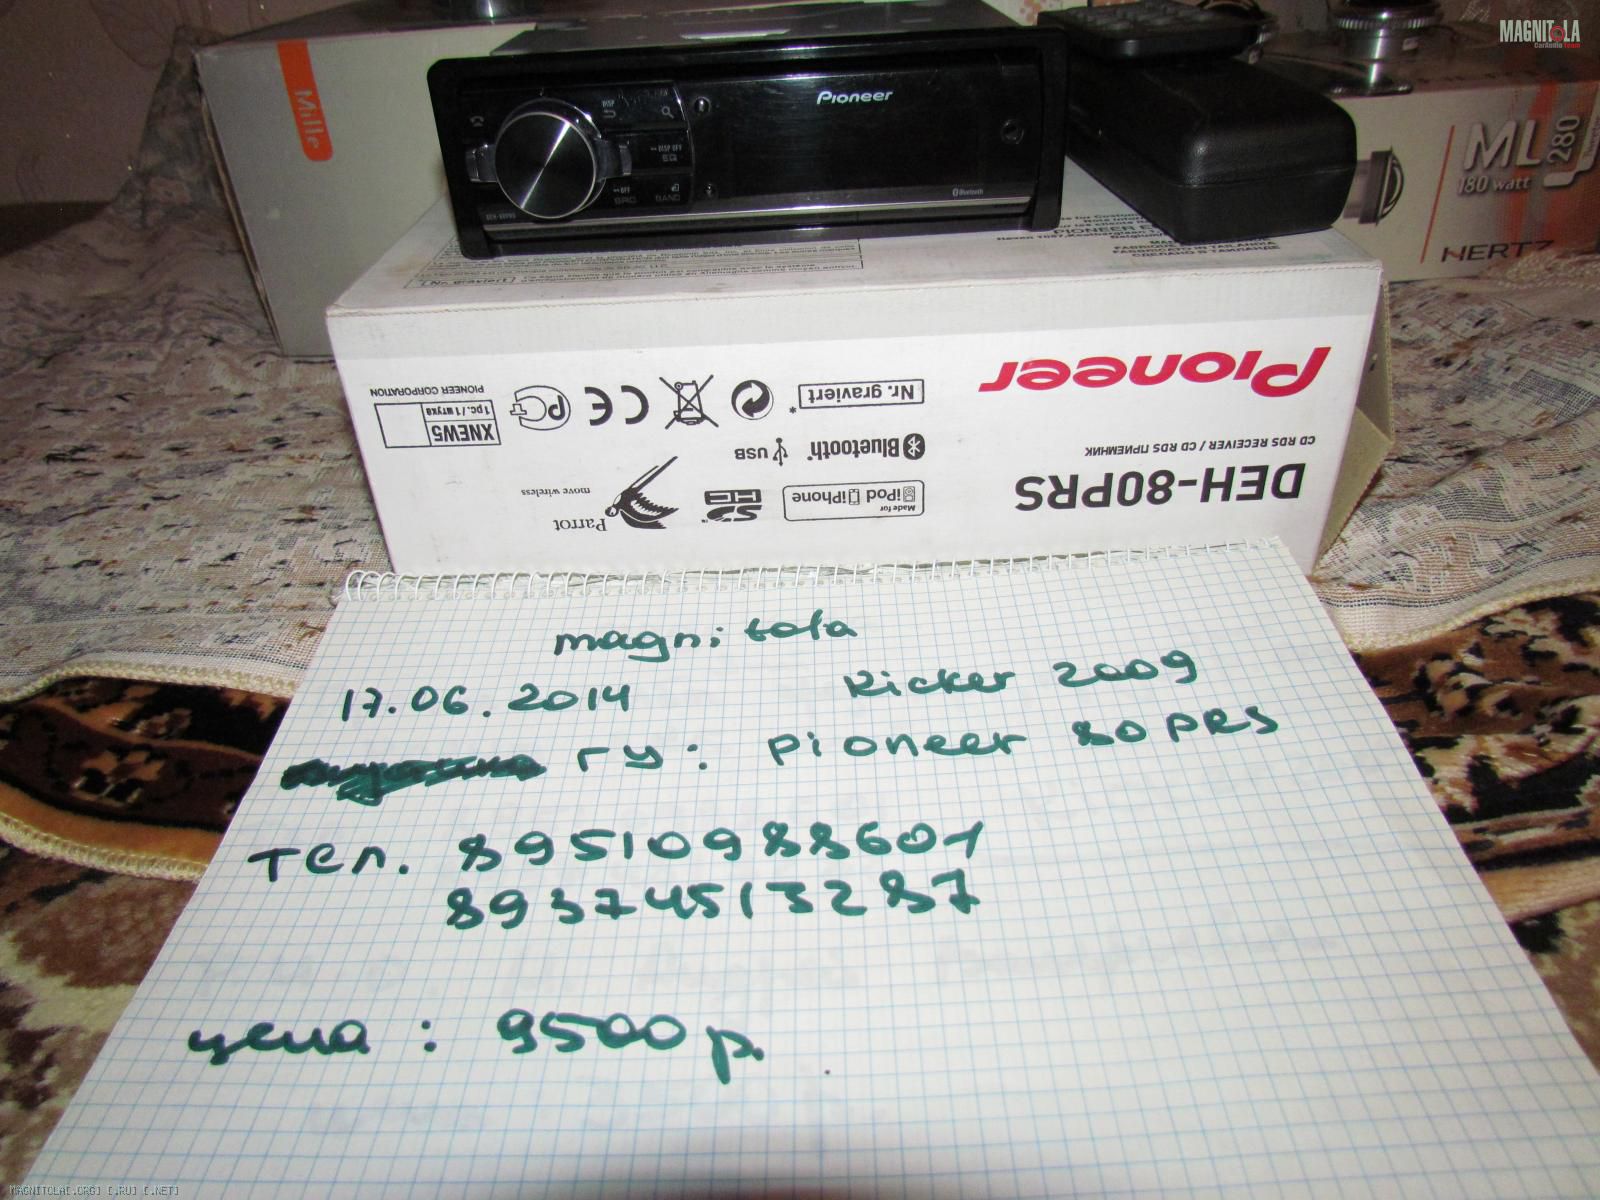 MAGNITOLA
CarAudio Team
Mille
Pioneer
DISP
DISP OFF
OFF
SRC
BAND
Bluetooth
DEH-80PRS
ML 280
180 watt
HERTZ
PIONEER
СДЕЛАНО В ТАИЛАНДЕ
Pioneer
CD RDS RECEIVER / CD RDS ПРИЕМНИК
DEH-80PRS
Nr. graviert
*
Bluetooth
USB
Made for
iPod iPhone
SD HC
Parrot
move wireless
PIONEER CORPORATION
1pc./1 штука
XNEW5
magnitola
17.06.2014 Kicker 2009
ГУ: Pioneer 80PRS
Тел. 89510988601
89374513287
цена: 9500 р.
MAGNITOLA[.ORG] [.RU] [.NET]